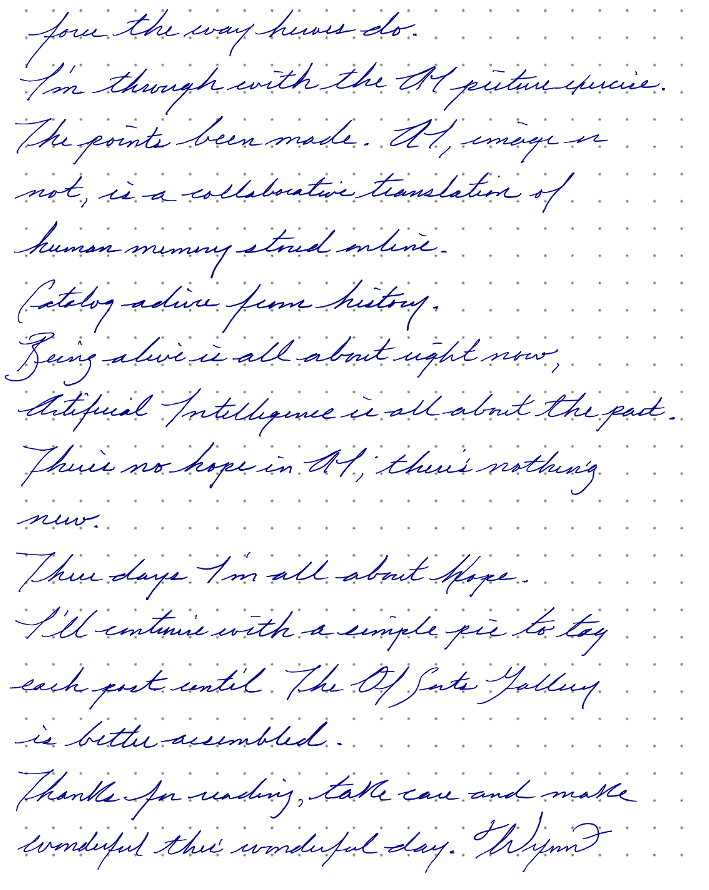 force the way hewes do.
I'm through with the AI picture exercise.
The points been made. AI, image or
not, is a collaborative translation of
human memory stored online.
Catalog advice from history.
Being alive is all about right now,
Artificial Intelligence is all about the past.
There's no hope in AI; there's nothing
new.
These days I'm all about Hope.
I'll continue with a simple pic to tag
each post until The Of Sorts Gallery
is better assembled.
Thanks for reading, take care and make
wonderful this wonderful day. Wynn